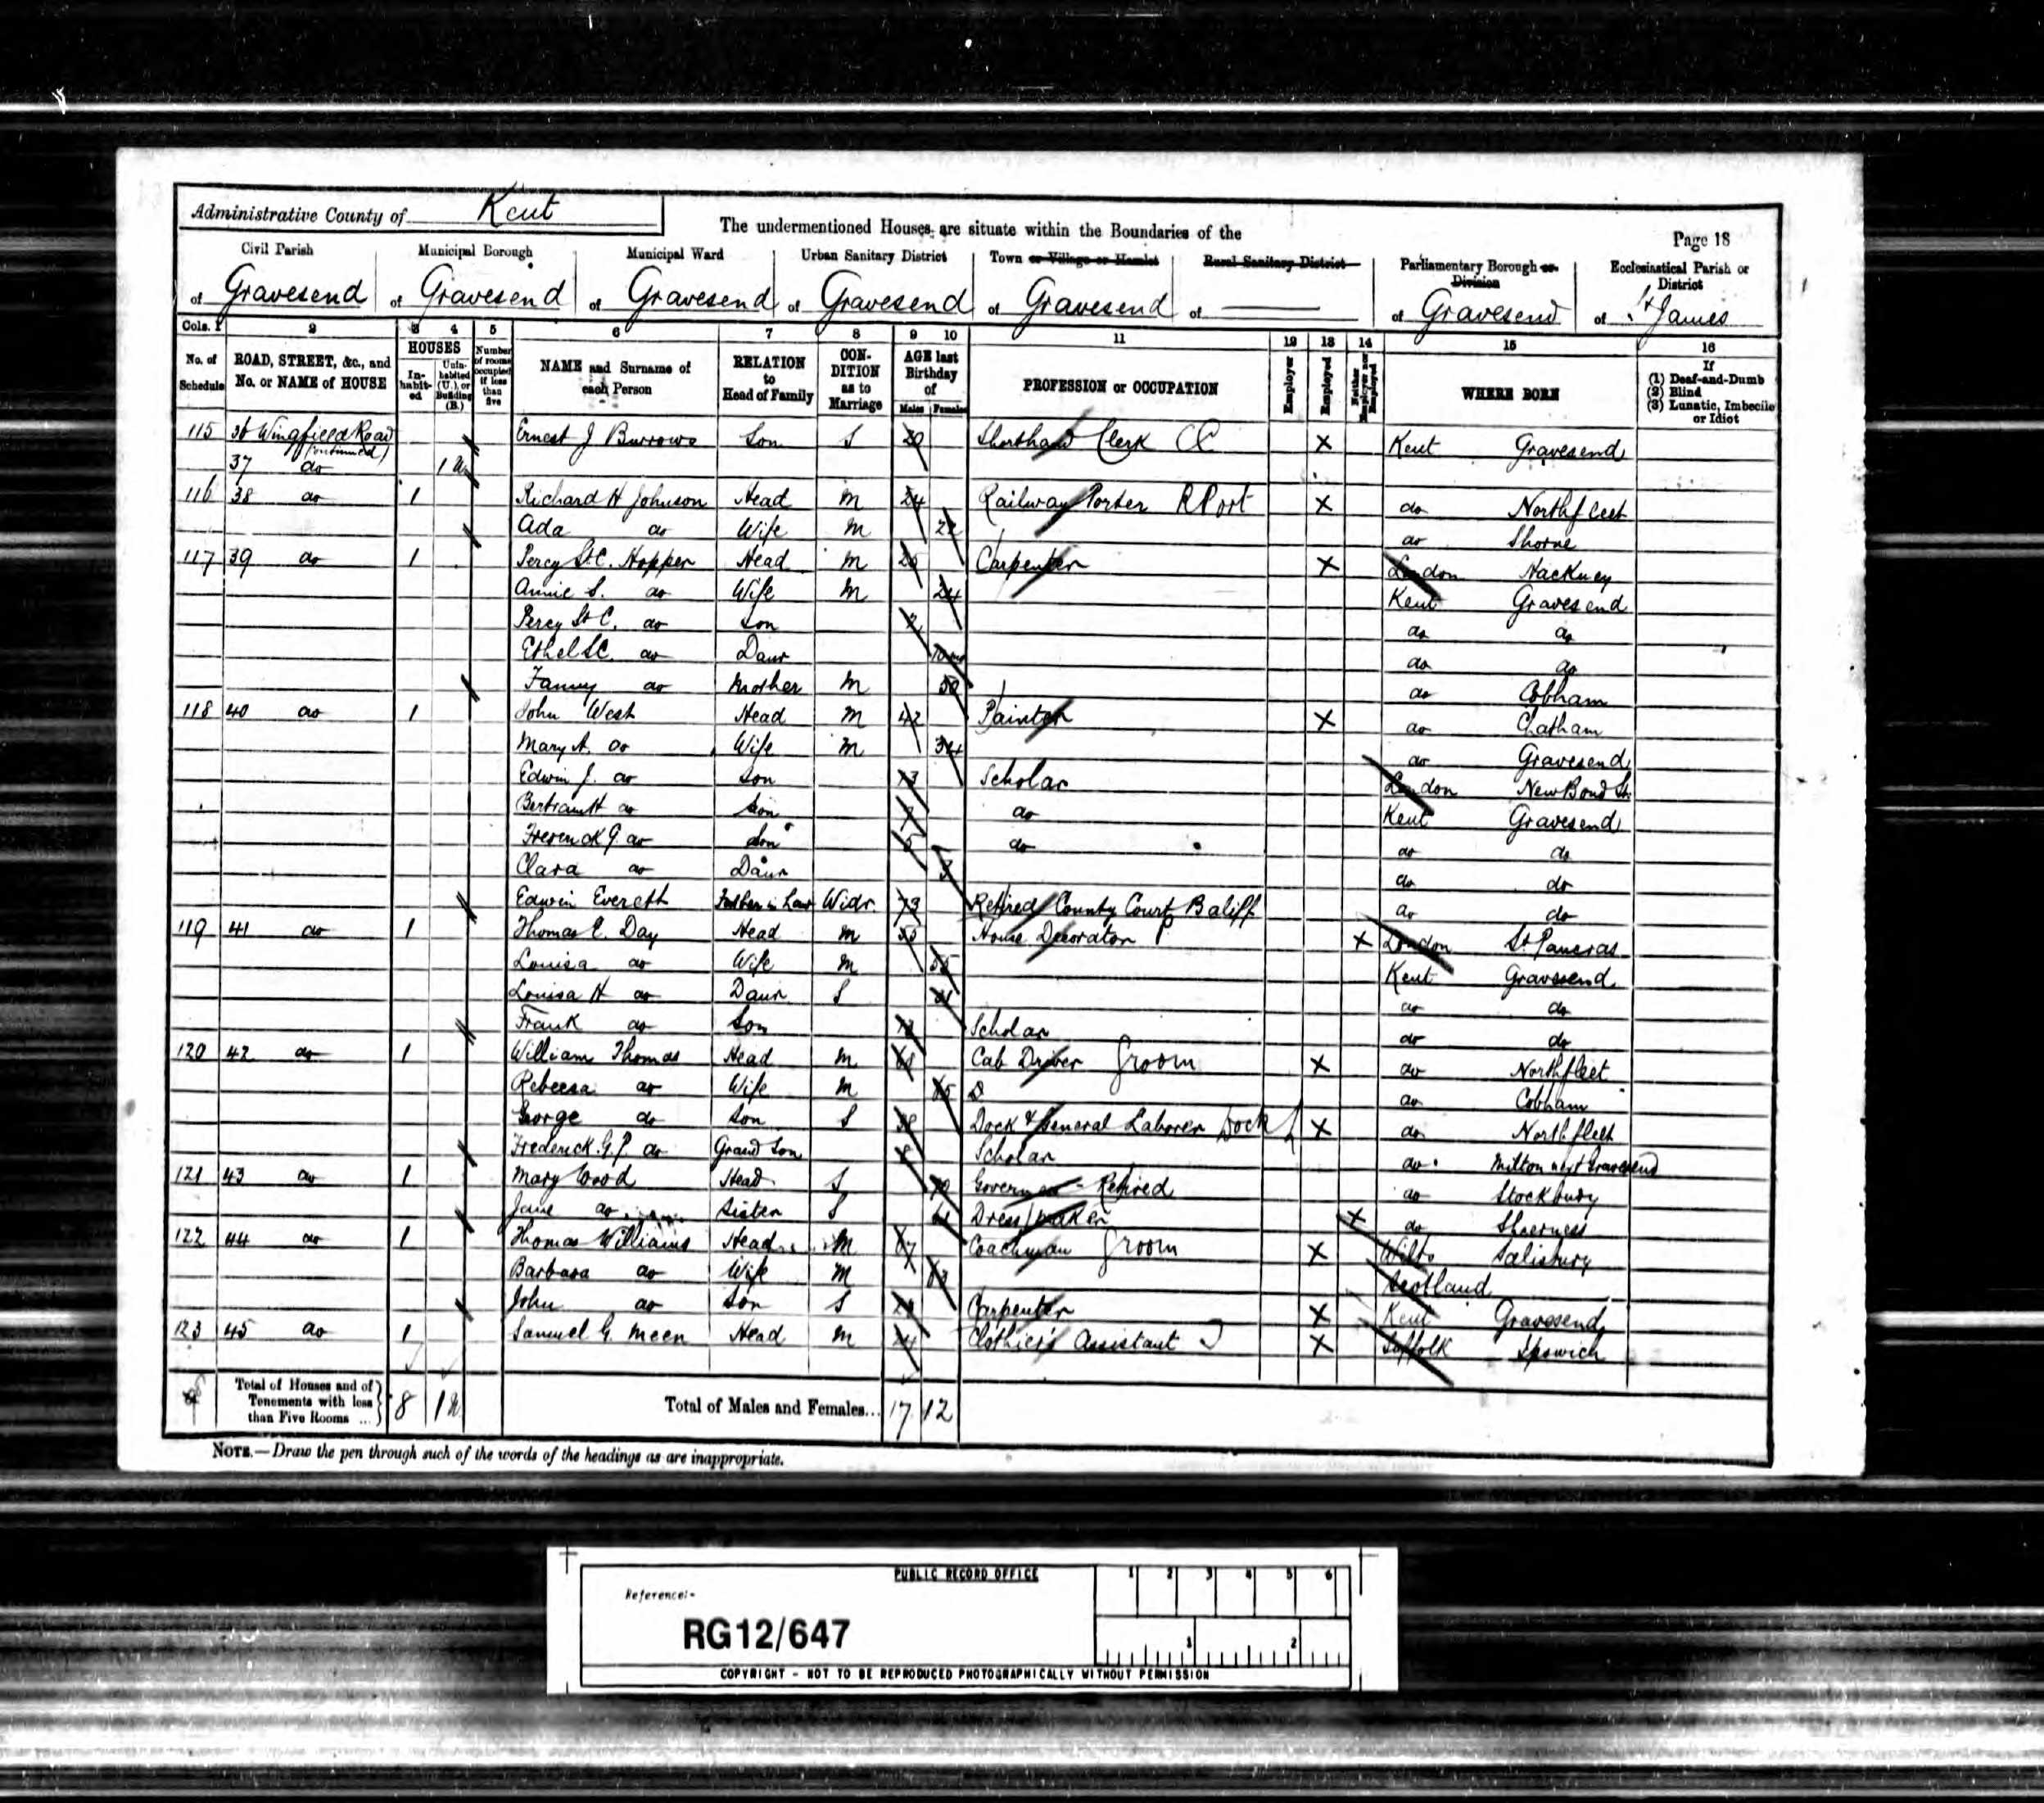 Administrative County of Kent
The undermentioned Houses are situate within the Boundaries of the
Page 18
Civil Parish
Municipal Borough
Municipal Ward
Urban Sanitary District
Town or Village or Hamlet
Rural Sanitary District
Parliamentary Borough or Division
Ecclesiastical Parish or District
of Gravesend
of Gravesend
of Gravesend
of Gravesend
of Gravesend
of
of Gravesend
of St James
Cols. 1 2 3 4 5 6 7 8 9 10 11 12 13 14 15 16
No. of Schedule
ROAD, STREET, &c., and No. or NAME of HOUSE
HOUSES
In-habit-ed
Unin-habited (U.), or Building (B.)
Number of rooms occupied if less than five
NAME and Surname of each Person
RELATION to Head of Family
CON-DITION as to Marriage
AGE last Birthday of
Males Females
PROFESSION or OCCUPATION
Employer
Employed
Neither Employer nor Employed
WHERE BORN
If
(1) Deaf-and-Dumb
(2) Blind
(3) Lunatic, Imbecile or Idiot
115 36 Wingfield Road (continued) Ernest J Burrows Son S 20 Shorthand Clerk CC X Kent Gravesend
37 do 1 U
116 38 do 1 Richard H Johnson Head M 24 Railway Porter R Port X do Northfleet
Ada do Wife M 22 do Shorne
117 39 do 1 Percy St C. Hopper Head M Carpenter X London Hackney
Annie S. do Wife M 24 Kent Gravesend
Percy St C. do Son 2 do do
Ethel St C. do Daur do do
Fanny do Mother M 50 do Cobham
118 40 do 1 John West Head M 42 Painter X do Chatham
Mary A. do Wife M 34 do Gravesend
Edwin J. do Son 13 Scholar London New Bond St.
Bertram H do Son do Kent Gravesend
Frederick G. do Son do do do
Clara do Daur 3 do do
Edwin Evereth Father in Law Widr. 73 Retired County Court Baliff do do
119 41 do 1 Thomas E. Day Head M House Decorator P X London St Pancras
Louisa do Wife M 55 Kent Gravesend
Louisa H do Daur S do do
Frank do Son Scholar do do
120 42 do 1 William Thomas Head M 68 Cab Driver Groom X do Northfleet
Rebecca do Wife M 65 do Cobham
George do Son S 38 Dock & General Laborer Dock L X do Northfleet
Frederick G. P. do Grand Son 8 Scholar do Milton next Gravesend
121 43 do 1 Mary Wood Head S 70 Governess Retired do Stockbury
Jane do Sister S Dress maker X do Sheerness
122 44 do 1 Thomas Williams Head M 67 Coachman Groom X Wilts Salisbury
Barbara do Wife M 63 Scotland
John do Son S Carpenter X Kent Gravesend
123 45 do 1 Samuel G. Meen Head M 24 Clothier's Assistant X Suffolk Ipswich
Total of Houses and of Tenements with less than Five Rooms ... 8 1 U
Total of Males and Females... 17 12
NOTE.—Draw the pen through such of the words of the headings as are inappropriate.
PUBLIC RECORD OFFICE
Reference:-
RG12/647
1 2 3 4 5 6
1 2
COPYRIGHT - NOT TO BE REPRODUCED PHOTOGRAPHICALLY WITHOUT PERMISSION